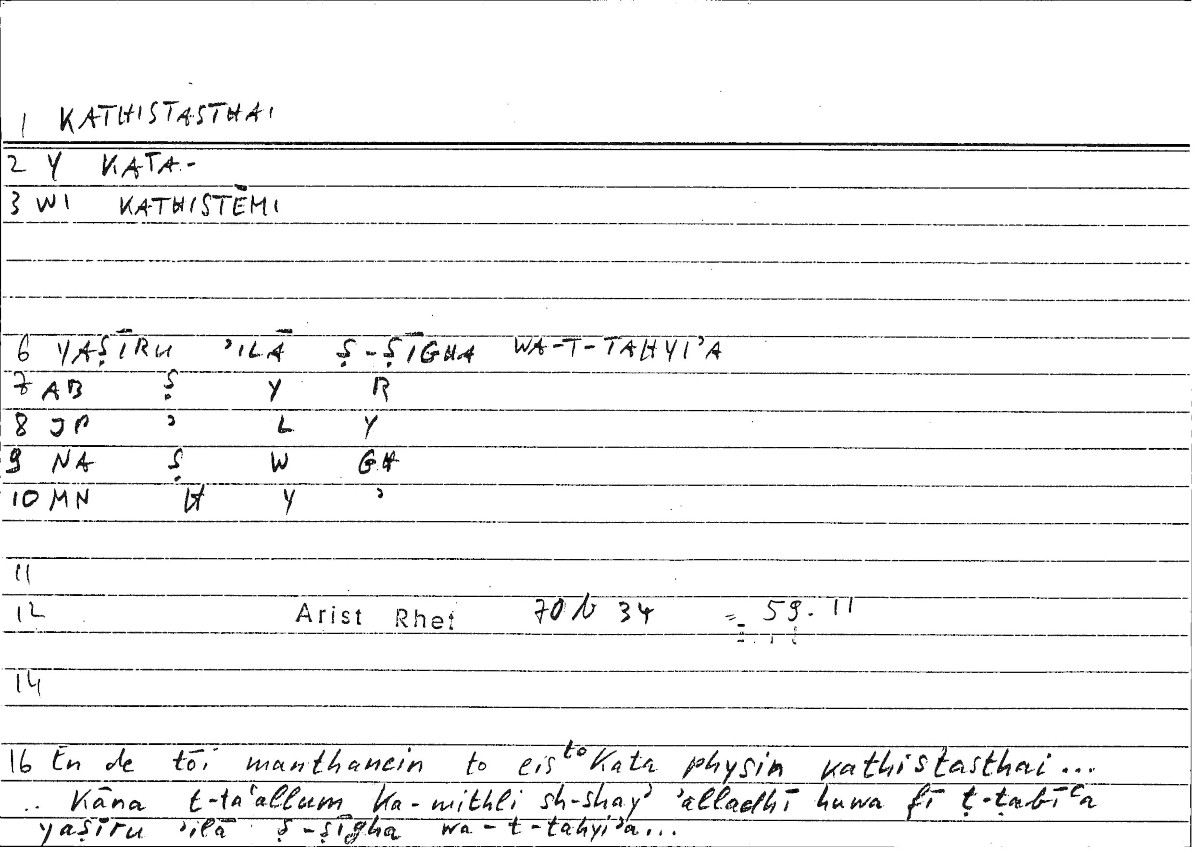 1 KATHISTASTHAI
2 Y KATA-
3 WI KATHISTĒMI
6 YAṢĪRU ʾILĀ Ṣ-ṢĪGHA WA-T-TAHYIʾA
7 AB Ṣ Y R
8 JP ʾ L Y
9 NA Ṣ W GH
10 MN H Y ʾ
11
12 Arist Rhet 70 b 34 = 59.11
14
16 En de tōi manthanein to eis to Kata physin kathistasthai...
.. Kāna t-taʿallum Ka-mithli sh-shayʾ ʾalladhī huwa fī ṭ-ṭabīʿa
yaṣīru ʾilā ṣ-ṣīgha wa-t-tahyiʾa...